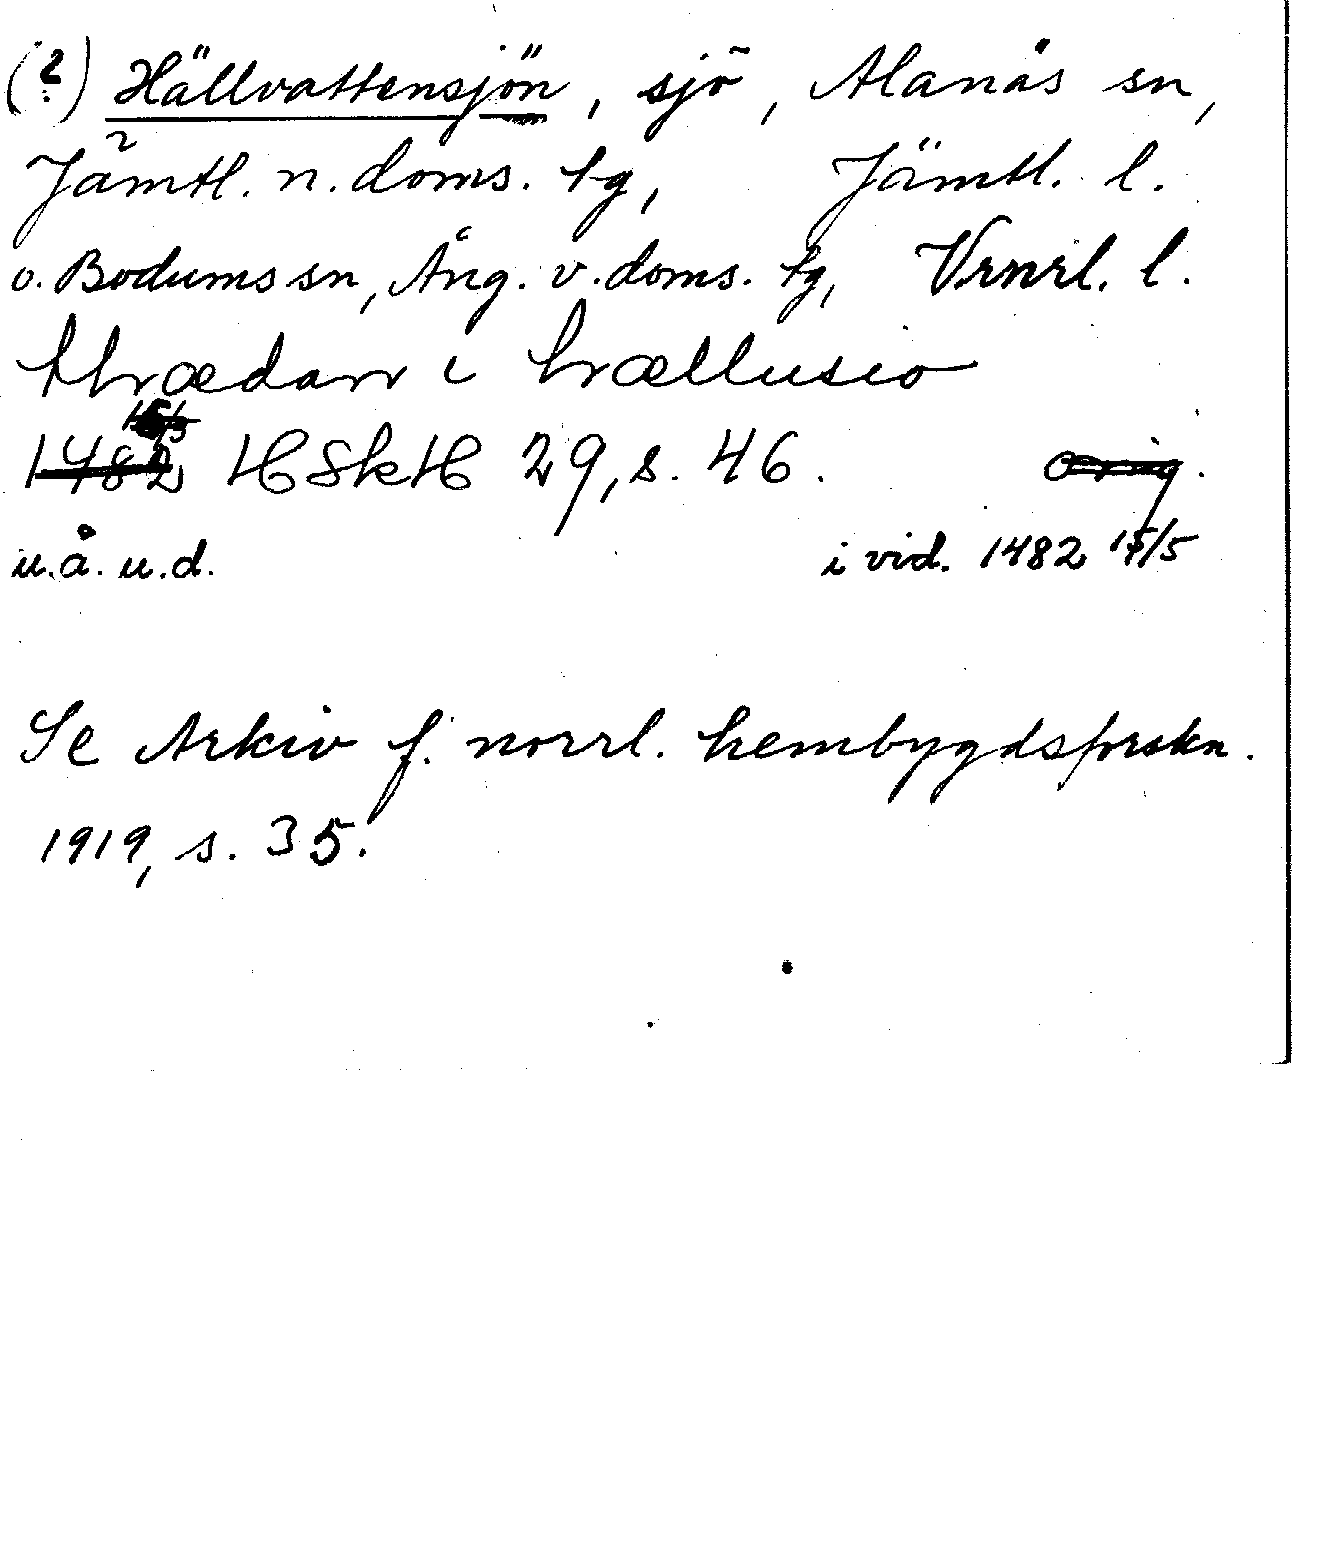 (?) Hällvattensjön, sjö, Alanäs sn,
Jämtl. n. doms. tg, Jämtl. l.
o. Bodums sn, Ång. v. doms. tg, Vrnrl. l.
thrædan i hrællusio
1482 15/5 HSkH 29, s. 46. orig.
u.å. u.d. i vid. 1482 15/5
Se Arkiv f. norrl. hembygdsforskn.
1919, s. 35.